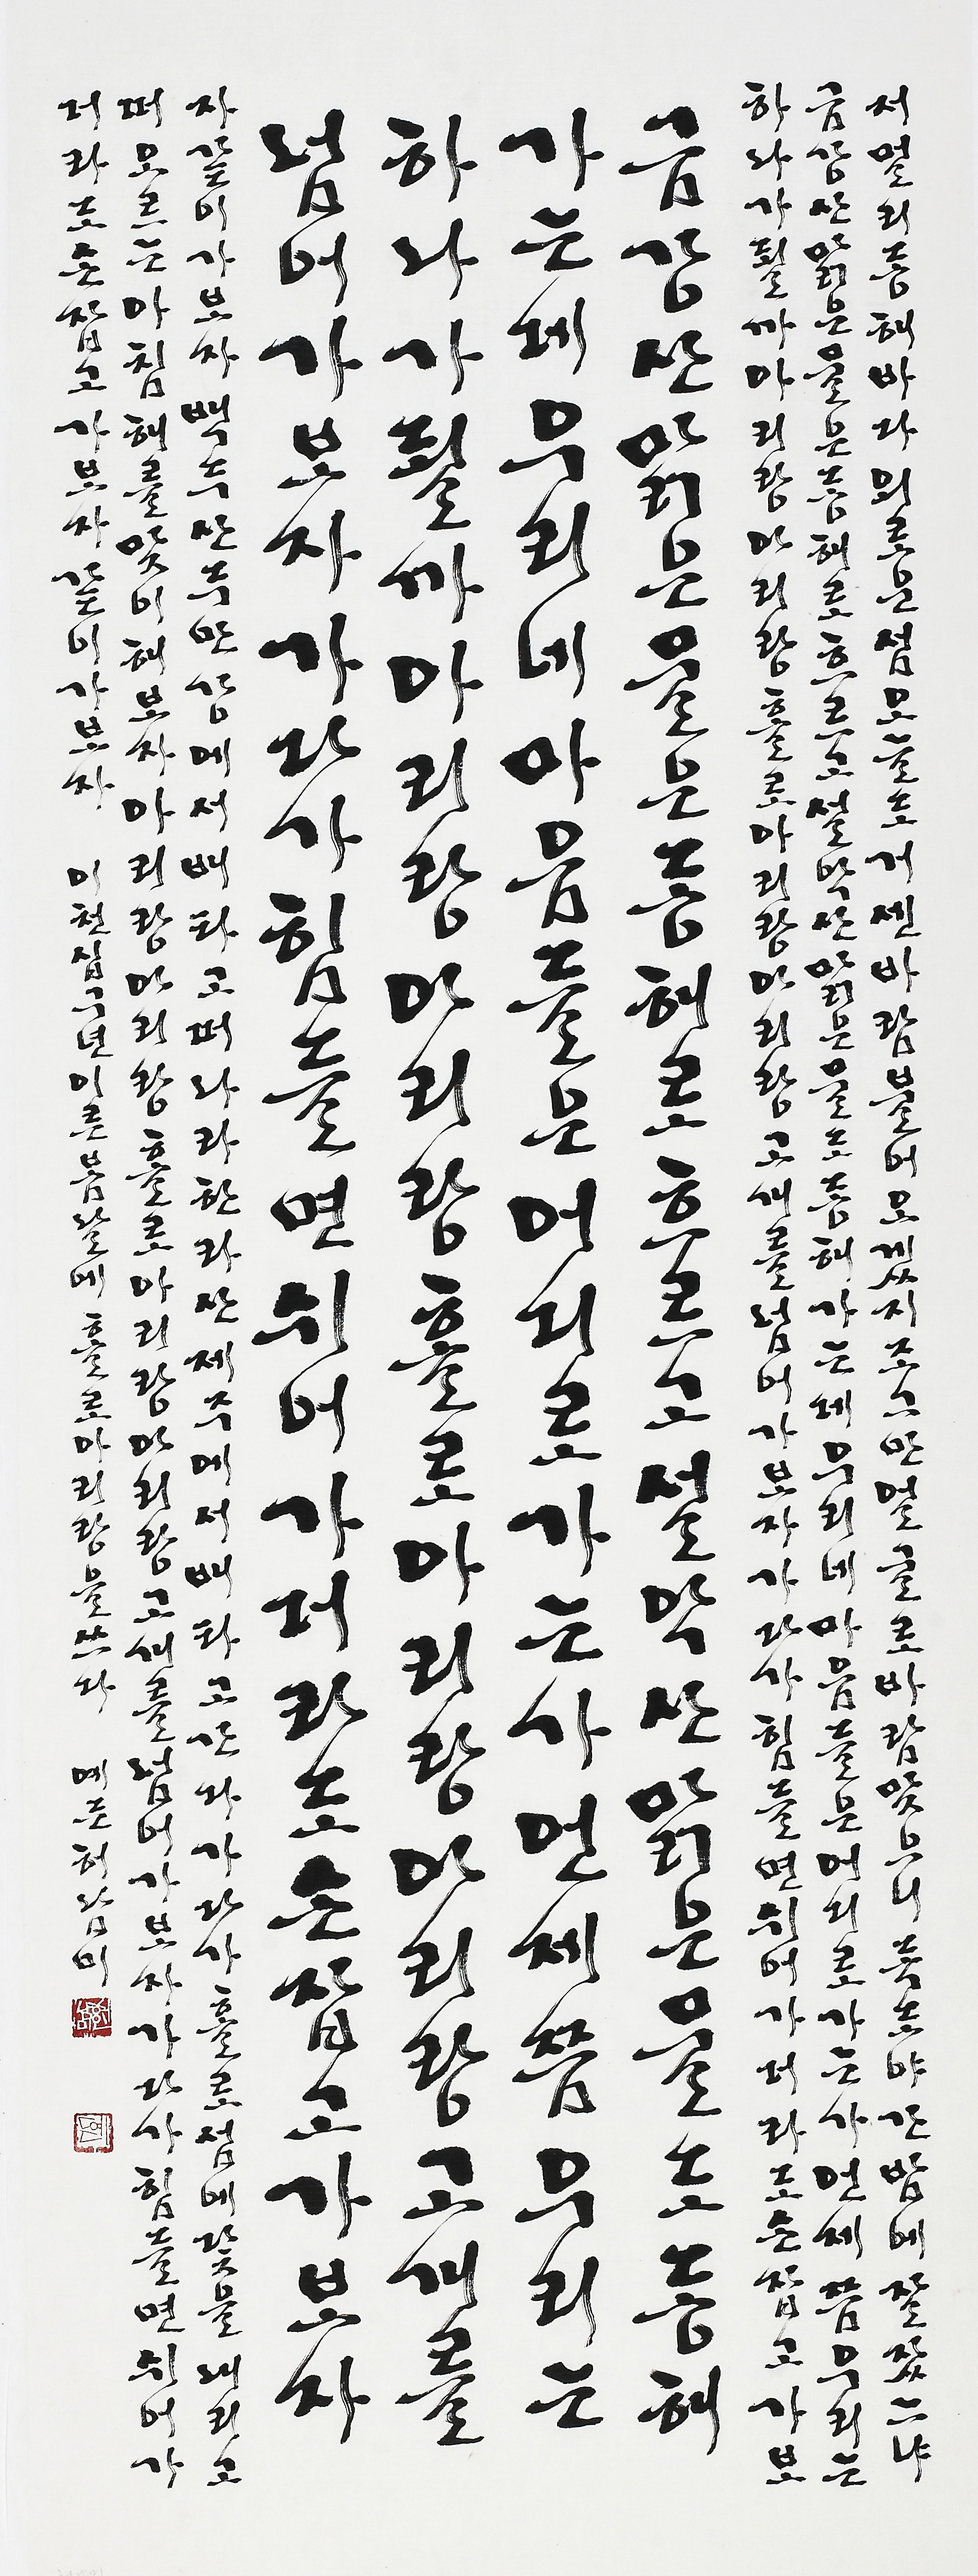 저멀리동해바다외로운섬오늘도거센바람불어오겠지조그만얼굴로바람맞으니독도야간밤에잘잤느냐
금강산맑은물은동해로흐르고설악산맑은물도동해가는데우리네마음들은어디로가는가언제쯤우리는
하나가될까아리랑아리랑홀로아리랑아리랑고개를넘어가보자가다가힘들면쉬어가더라도손잡고가보
금강산맑은물은동해로흐르고설악산맑은물도동해
가는데우리네마음들은어디로가는가언제쯤우리는
하나가될까아리랑아리랑홀로아리랑아리랑고개를
넘어가보자가다가힘들면쉬어가더라도손잡고가보자
자같이가보자백두산두만강에서배타고떠나라한라산제주에서배타고간다가다가홀로섬에닻을내리고
떠오르는아침해를맞이해보자아리랑아리랑홀로아리랑아리랑고개를넘어가보자가다가힘들면쉬어가
더라도손잡고가보자같이가보자 이천십구년이른봄날에 홀로아리랑을쓰다